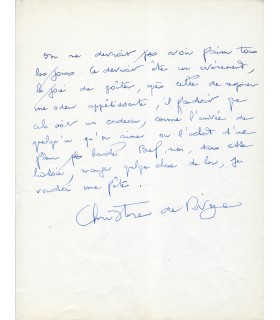 on ne devrait pas avoir faim tous
les jours ce devrait être un événement,
la joie de goûter, après celle de respirer
une odeur appétissante, il faudrait que
cela soit un cadeau, comme l'arrivée de
quelqu'un qu'on aime ou l'achat d'une
fleur pas Bref, moi, dans cette
histoire, manger quelque chose de bon, je
voudrais une fête.
Christine de Rivoyre